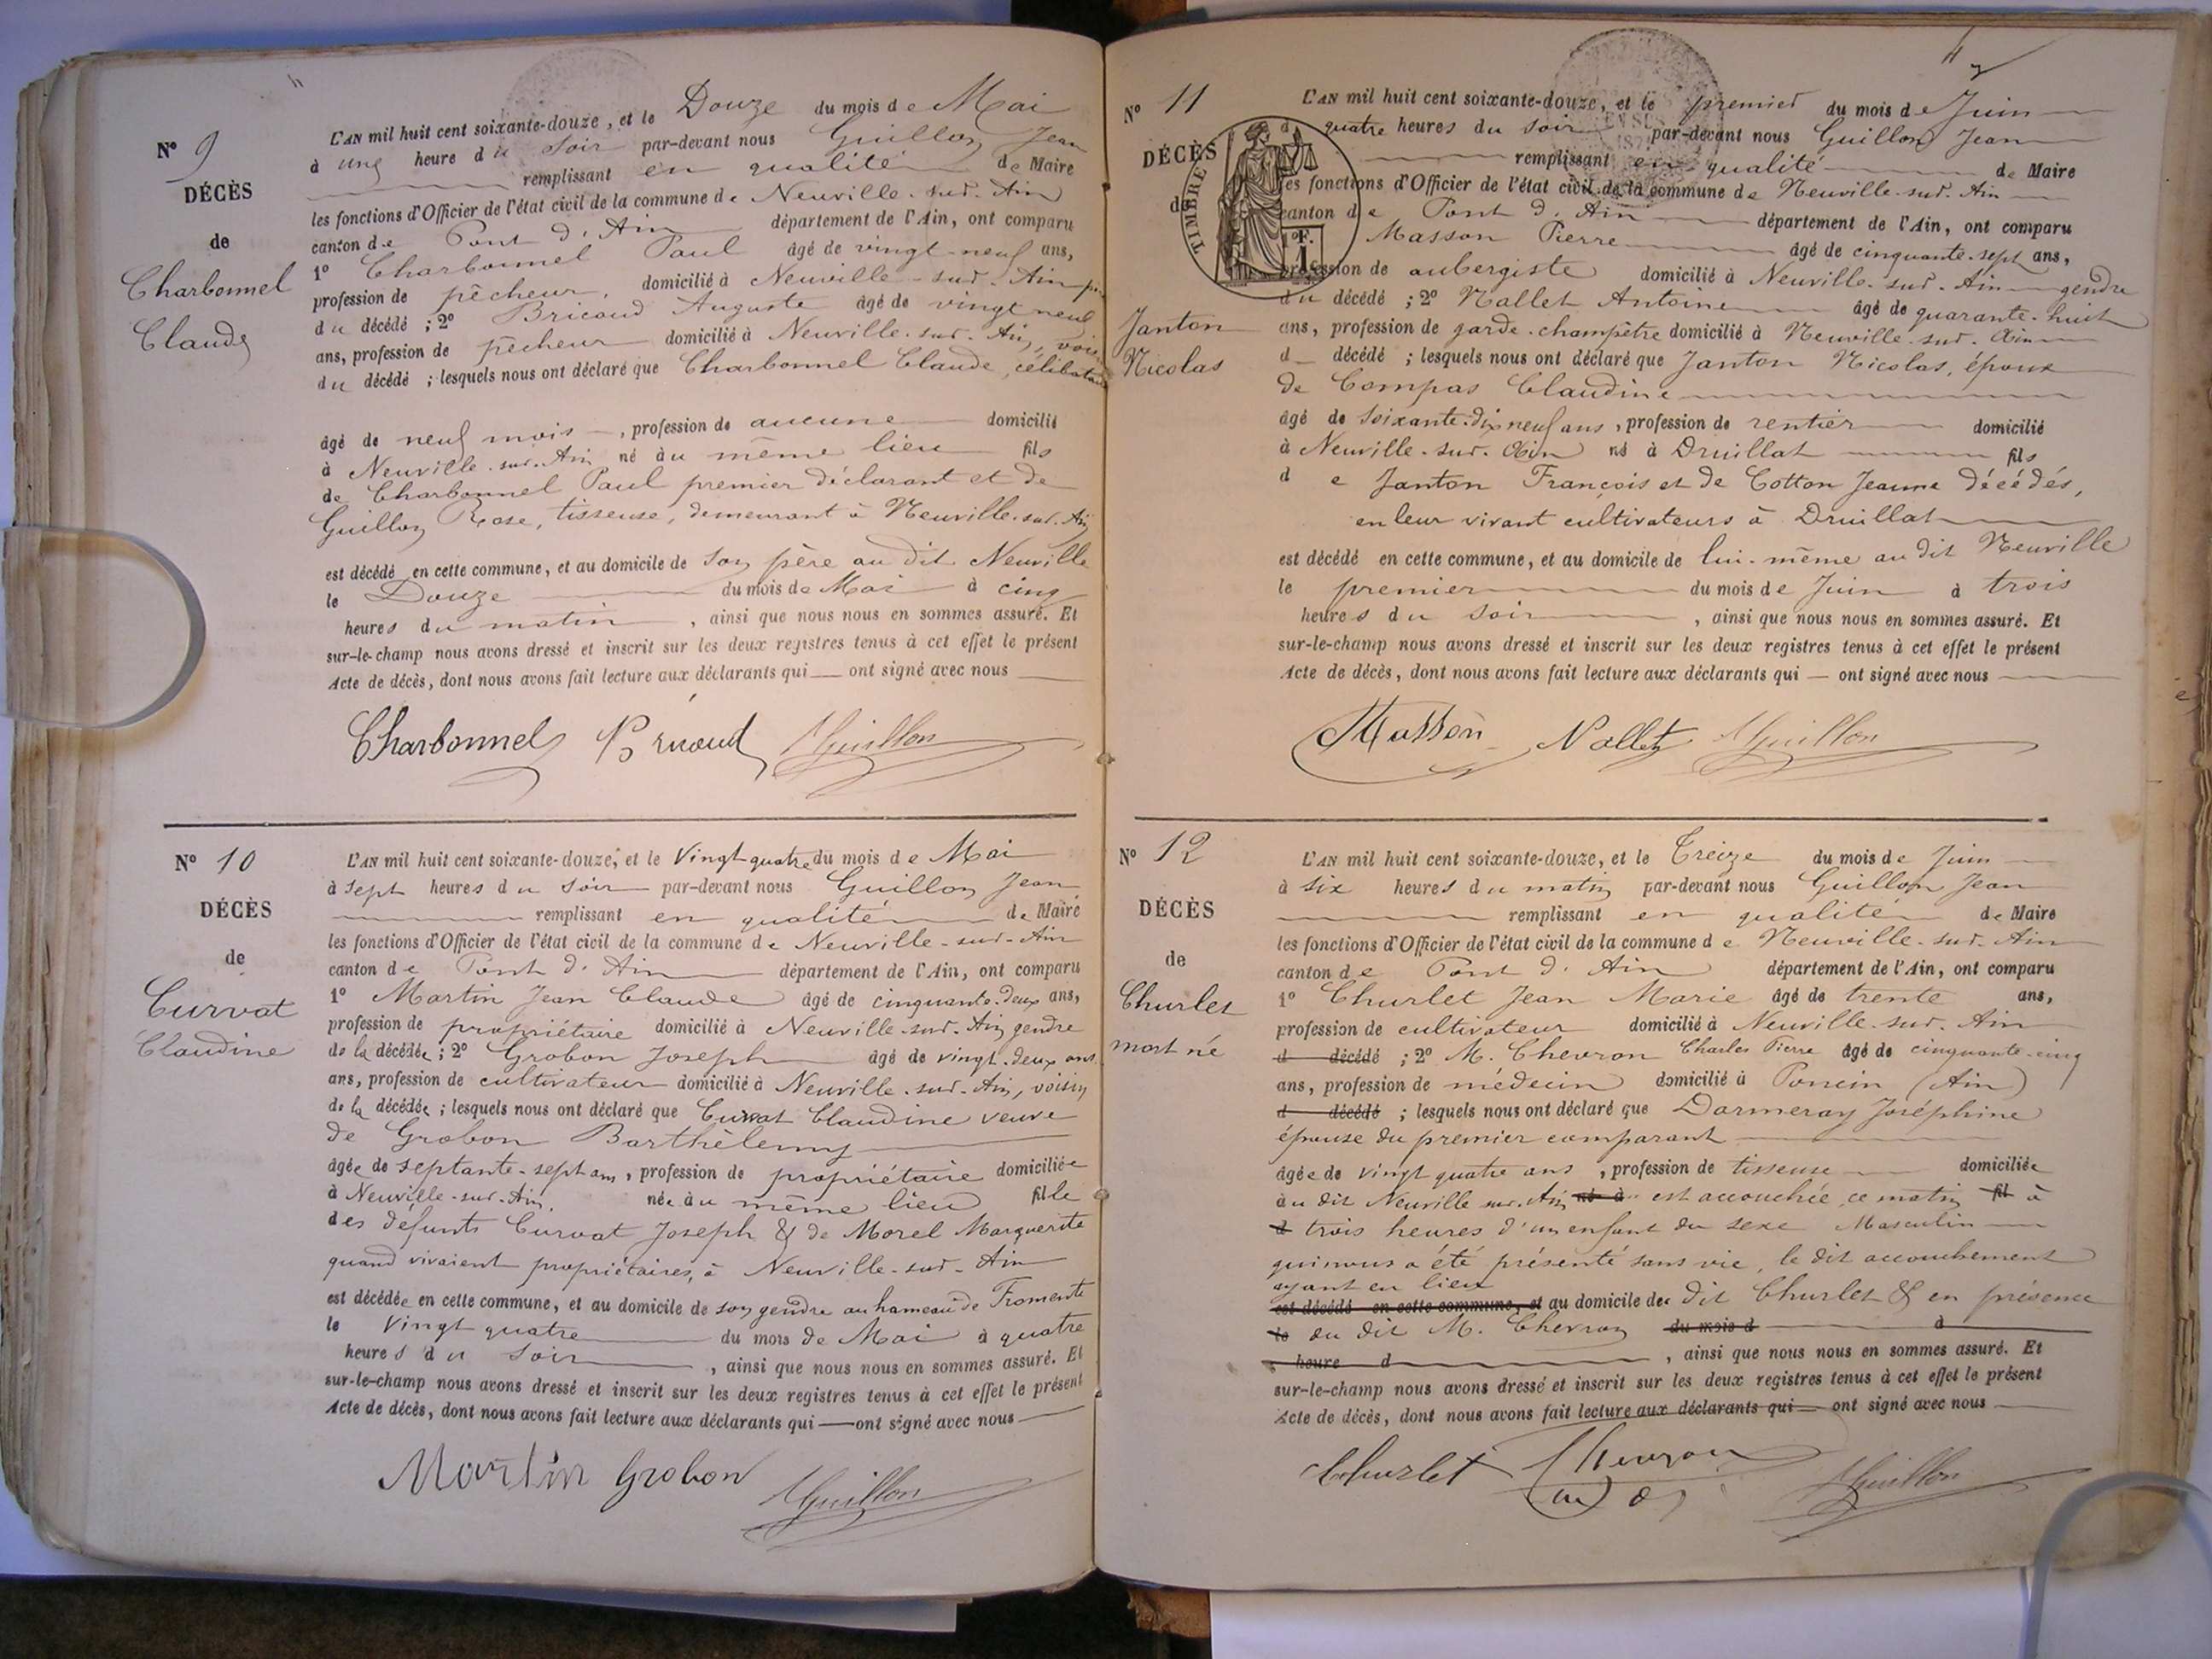 N° 9
DÉCÈS
de
Charbonnel
Claude
L'AN mil huit cent soixante-douze, et le Douze du mois de Mai
à une heure du soir par-devant nous Guillon Jean
remplissant en qualité de Maire
les fonctions d'Officier de l'état civil de la commune de Neuville-sur-Ain
canton de Pont d'Ain département de l'Ain, ont comparu
1° Charbonnel Paul âgé de vingt-neuf ans,
profession de pêcheur, domicilié à Neuville-sur-Ain
du décédé ; 2° Bricaud Auguste âgé de vingt neuf
ans, profession de pêcheur domicilié à Neuville-sur-Ain,
du décédé ; lesquels nous ont déclaré que Charbonnel Claude,
âgé de neuf mois, profession de aucune domicilié
à Neuville-sur-Ain né au même lieu fils
de Charbonnel Paul premier déclarant et de
Guillon Rose, tisseuse, demeurant à Neuville-sur-Ain
est décédé en cette commune, et au domicile de son père au dit Neuville
le Douze du mois de Mai à cinq
heures du matin, ainsi que nous nous en sommes assuré. Et
sur-le-champ nous avons dressé et inscrit sur les deux registres tenus à cet effet le présent
Acte de décès, dont nous avons fait lecture aux déclarants qui ont signé avec nous
Charbonnel Guillon
N° 10
DÉCÈS
de
Curvat
Claudine
L'AN mil huit cent soixante-douze, et le Vingt quatre du mois de Mai
à sept heures du soir par-devant nous Guillon Jean
remplissant en qualité de Maire
les fonctions d'Officier de l'état civil de la commune de Neuville-sur-Ain
canton de Pont d'Ain département de l'Ain, ont comparu
1° Martin Jean Claude âgé de cinquante-deux ans,
profession de propriétaire domicilié à Neuville-sur-Ain gendre
de la décédée ; 2° Grobon Joseph âgé de vingt-deux ans
ans, profession de cultivateur domicilié à Neuville-sur-Ain, voisin
de la décédée ; lesquels nous ont déclaré que Curvat Claudine veuve
de Grobon Barthélemy
âgée de septante-sept ans, profession de propriétaire domiciliée
à Neuville-sur-Ain, née au même lieu fille
des défunts Curvat Joseph & de Morel Marguerite
quand vivaient propriétaires, à Neuville-sur-Ain
est décédée en cette commune, et au domicile de son gendre au hameau de Fromente
le Vingt quatre du mois de Mai à quatre
heures du soir, ainsi que nous nous en sommes assuré. Et
sur-le-champ nous avons dressé et inscrit sur les deux registres tenus à cet effet le présent
Acte de décès, dont nous avons fait lecture aux déclarants qui ont signé avec nous
Martin Grobon Guillon
N° 11
DÉCÈS
de
Janton
Nicolas
TIMBRE
1 F.
L'AN mil huit cent soixante-douze, et le premier du mois de Juin
quatre heures du soir par-devant nous Guillon Jean
remplissant en qualité de Maire
les fonctions d'Officier de l'état civil de la commune de Neuville-sur-Ain
canton de Pont d'Ain département de l'Ain, ont comparu
Masson Pierre âgé de cinquante-sept ans,
profession de aubergiste domicilié à Neuville-sur-Ain gendre
du décédé ; 2° Nallet Antoine âgé de quarante-huit
ans, profession de garde-champêtre domicilié à Neuville-sur-Ain
d décédé ; lesquels nous ont déclaré que Janton Nicolas, époux
de Compas Claudine
âgé de soixante-dix neuf ans, profession de rentier domicilié
à Neuville-sur-Ain né à Druillat fils
de Janton François et de Cotton Jeanne décédés,
en leur vivant cultivateurs à Druillat
est décédé en cette commune, et au domicile de lui-même au dit Neuville
le premier du mois de Juin à trois
heures du soir, ainsi que nous nous en sommes assuré. Et
sur-le-champ nous avons dressé et inscrit sur les deux registres tenus à cet effet le présent
Acte de décès, dont nous avons fait lecture aux déclarants qui ont signé avec nous
Masson Nallet Guillon
N° 12
DÉCÈS
de
Churlet
mort né
L'AN mil huit cent soixante-douze, et le Treize du mois de Juin
à six heures du matin par-devant nous Guillon Jean
remplissant en qualité de Maire
les fonctions d'Officier de l'état civil de la commune de Neuville-sur-Ain
canton de Pont d'Ain département de l'Ain, ont comparu
1° Churlet Jean Marie âgé de trente ans,
profession de cultivateur domicilié à Neuville-sur-Ain
d décédé ; 2° M. Chevron Charles Pierre âgé de cinquante-cinq
ans, profession de médecin domicilié à Poncin (Ain)
d décédé ; lesquels nous ont déclaré que Darmeray Joséphine
épouse du premier comparant
âgée de vingt quatre ans, profession de tisseuse domiciliée
au dit Neuville sur-Ain né à est accouchée ce matin fil à
d trois heures d'un enfant du sexe Masculin
qui nous a été présenté sans vie, le dit accouchement
ayant eu lieu
est décédé en cette commune, et au domicile de dit Churlet & en présence
le du dit M. Chevron du mois d à
heure d, ainsi que nous nous en sommes assuré. Et
sur-le-champ nous avons dressé et inscrit sur les deux registres tenus à cet effet le présent
Acte de décès, dont nous avons fait lecture aux déclarants qui ont signé avec nous
Churlet Chevron Guillon